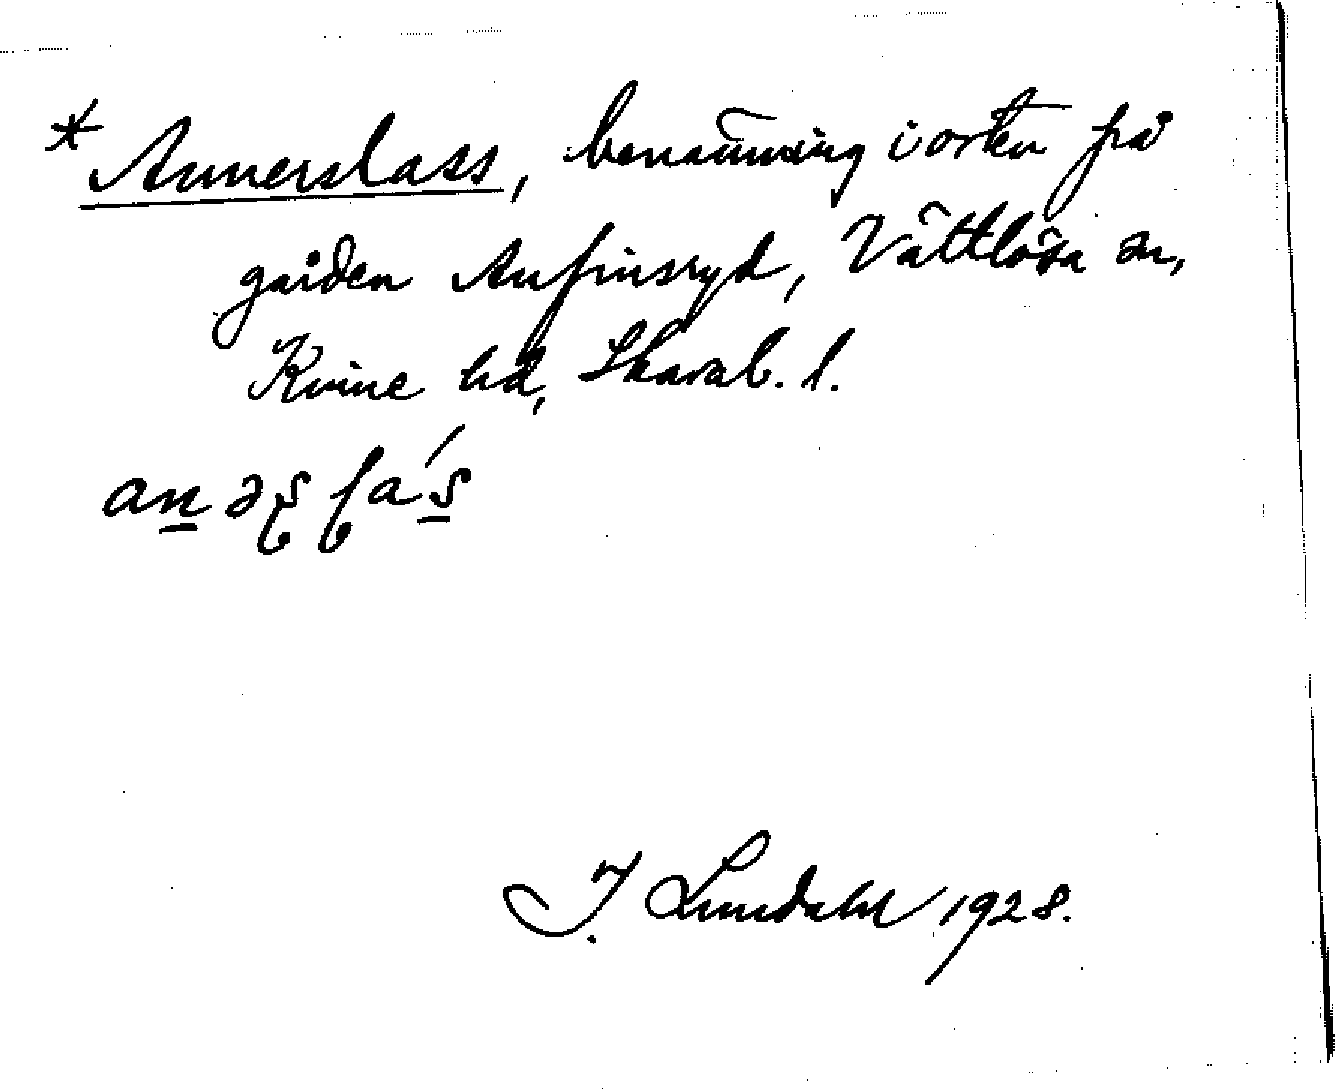 * Annerslass, benämning i orten på
gården Anfinsryd, Vättlösa sn,
Kinne hd, Skarab. l.
I. Lundahl 1928.